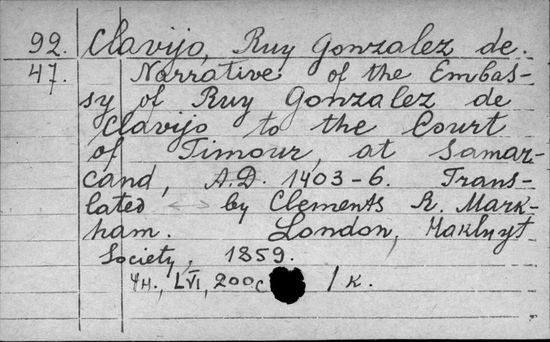 92. Clavijo, Ruy Gonzalez de.
47. Narrative of the Embas-
sy of Ruy Gonzalez de
Clavijo to the Court
of Timour, at Samar-
cand, A.D. 1403-6. Trans-
lated by Clements R. Mark-
ham. London, Hakluyt
Society, 1859.
4н., LVI, 200c 1 к.